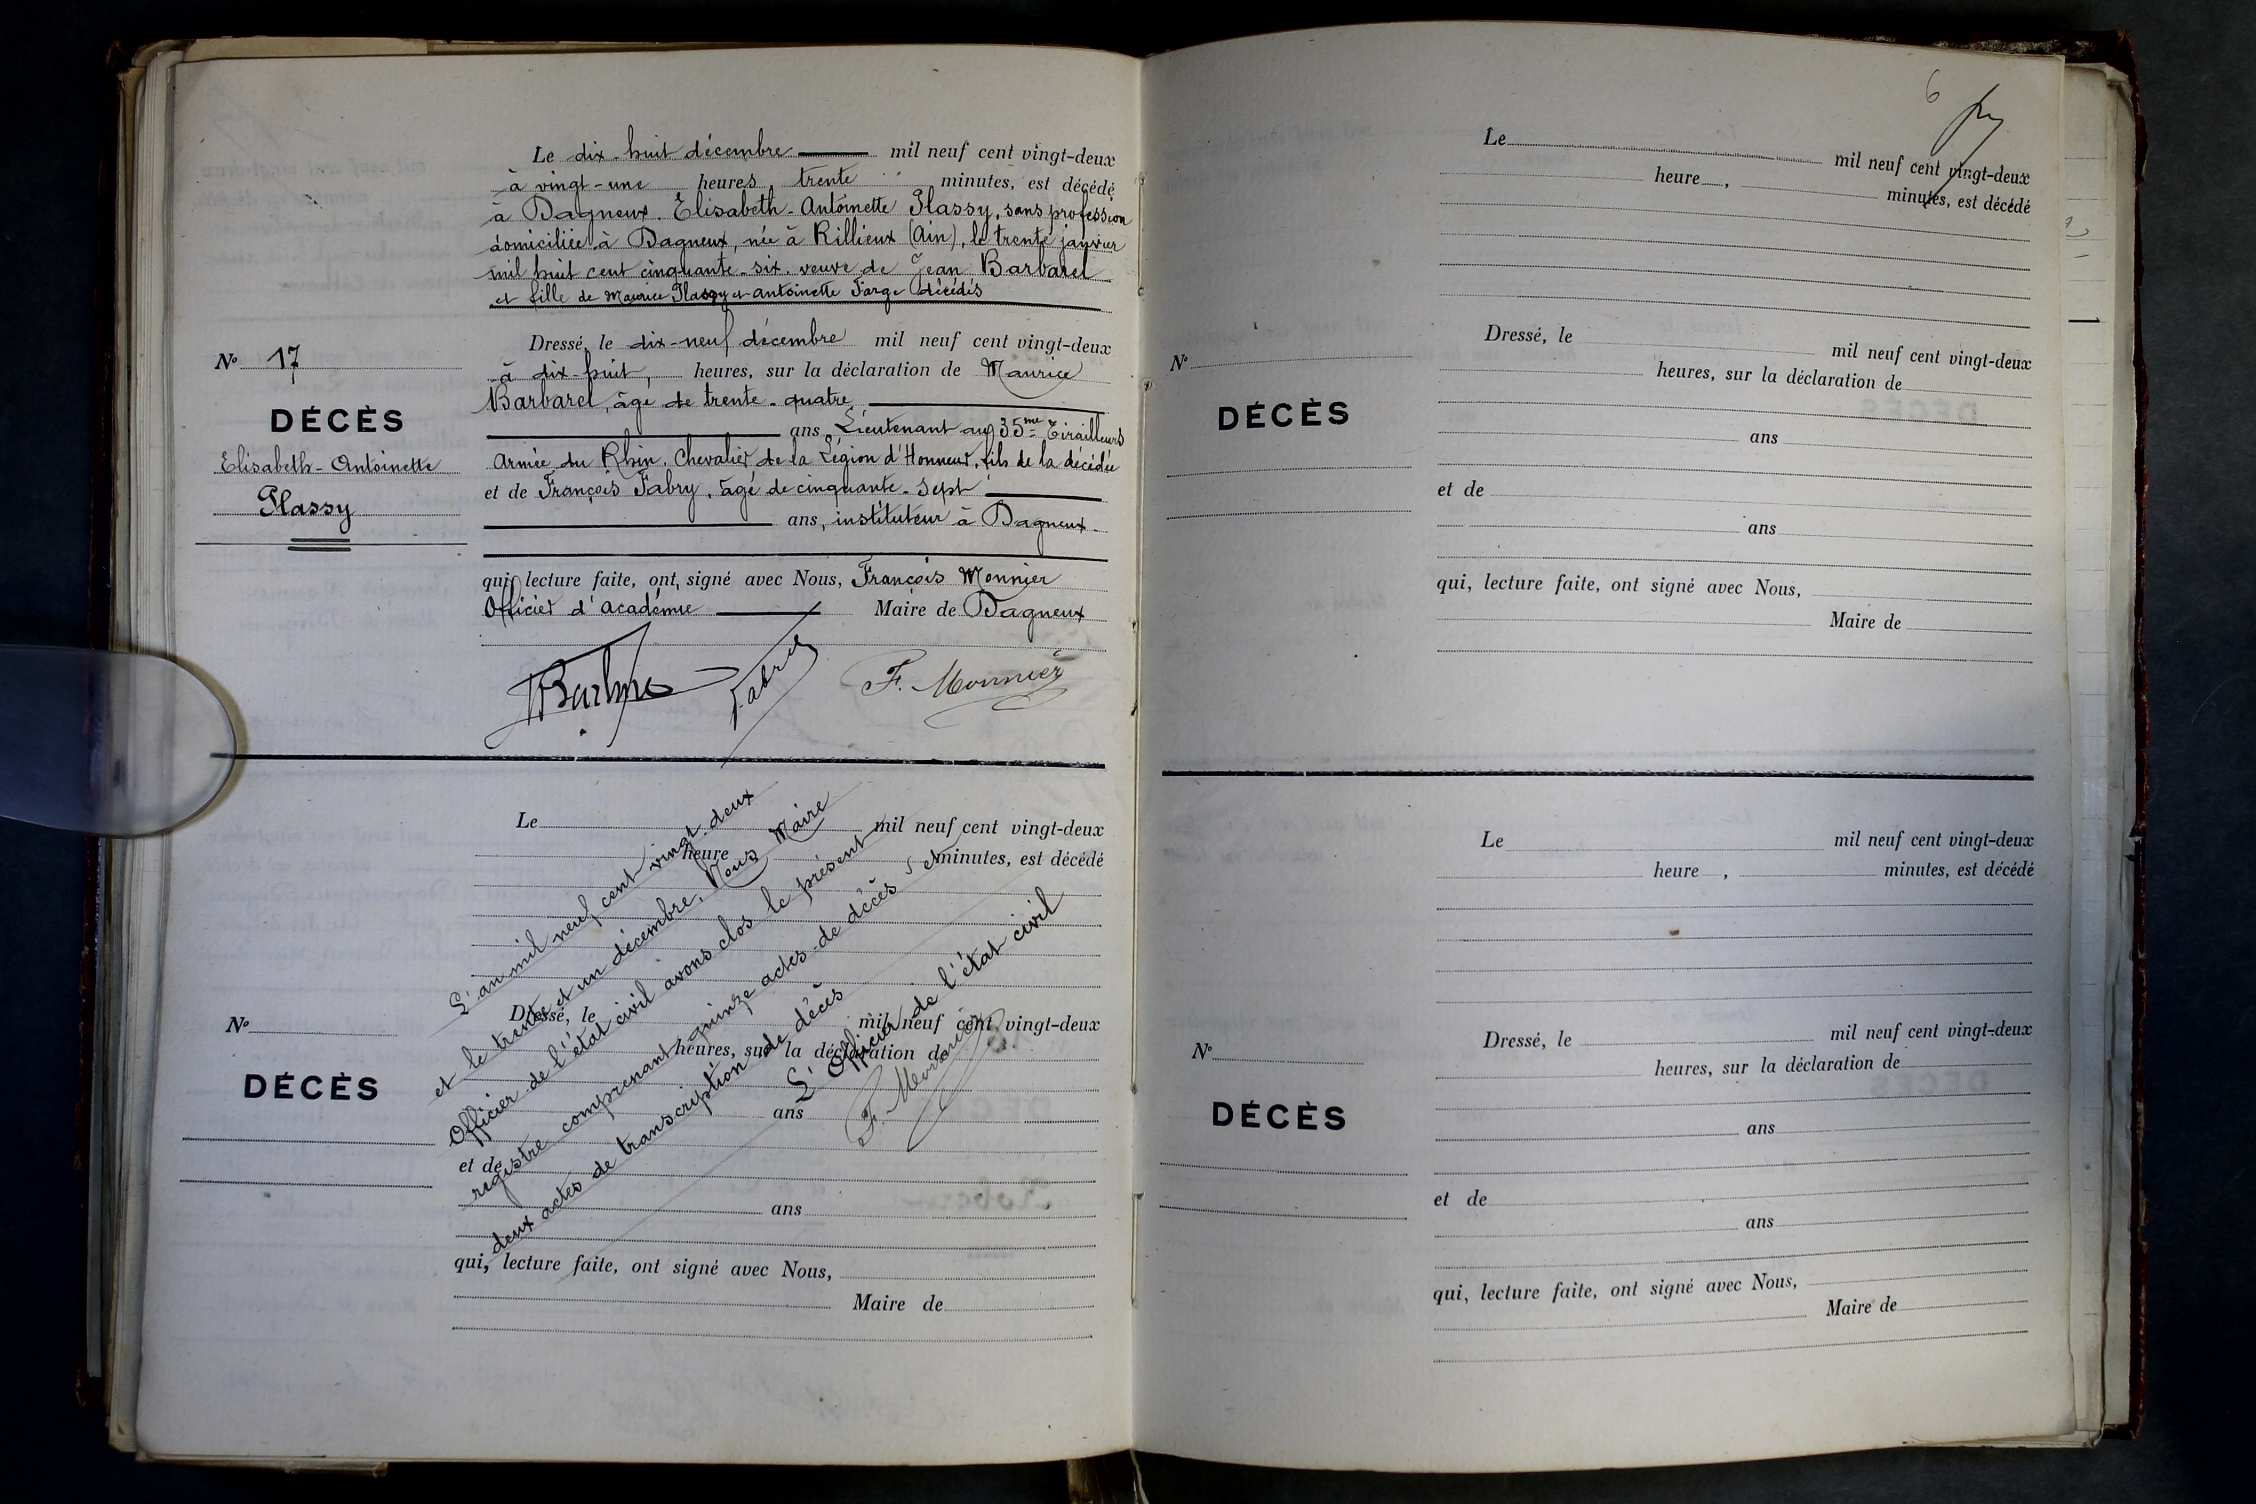 Le dix-huit décembre mil neuf cent vingt-deux
à vingt-une heures trente minutes, est décédé
à Dagneux. Elisabeth-Antoinette Plassy, sans profession
domiciliée à Dagneux, née à Rillieux (Ain), le trente janvier
mil huit cent cinquante-six. veuve de Jean Barbarel
et fille de Maurice Plassy et Antoinette Farge décédés
Dressé, le dix-neuf décembre mil neuf cent vingt-deux
à dix-huit, heures, sur la déclaration de Maurice
Barbarel, âgé de trente-quatre
ans, Lieutenant au 35me Tirailleurs
Armée du Rhin. Chevalier de la Légion d'Honneur, fils de la décédée
et de François Fabry, âgé de cinquante-sept
ans, instituteur à Dagneux
qui, lecture faite, ont signé avec Nous, François Monnier
Officier d'académie Maire de Dagneux
Fabry
F. Monnier
No 17
DÉCÈS
Elisabeth-Antoinette
Plassy
Le mil neuf cent vingt-deux
heure minutes, est décédé
Dressé, le mil neuf cent vingt-deux
heures, sur la déclaration de
ans
et de
ans
qui, lecture faite, ont signé avec Nous,
Maire de
No
DÉCÈS
L'an mil neuf cent vingt-deux
et le trente et un décembre, Nous Maire
Officier de l'état civil avons clos le présent
registre comprenant quinze actes de décès et
deux actes de transcription de décès
L'Officier de l'état civil
F. Monnier
6
Le mil neuf cent vingt-deux
heure , minutes, est décédé
Dressé, le mil neuf cent vingt-deux
heures, sur la déclaration de
ans
et de
ans
qui, lecture faite, ont signé avec Nous,
Maire de
No
DÉCÈS
Le mil neuf cent vingt-deux
heure , minutes, est décédé
Dressé, le mil neuf cent vingt-deux
heures, sur la déclaration de
ans
et de
ans
qui, lecture faite, ont signé avec Nous,
Maire de
No
DÉCÈS